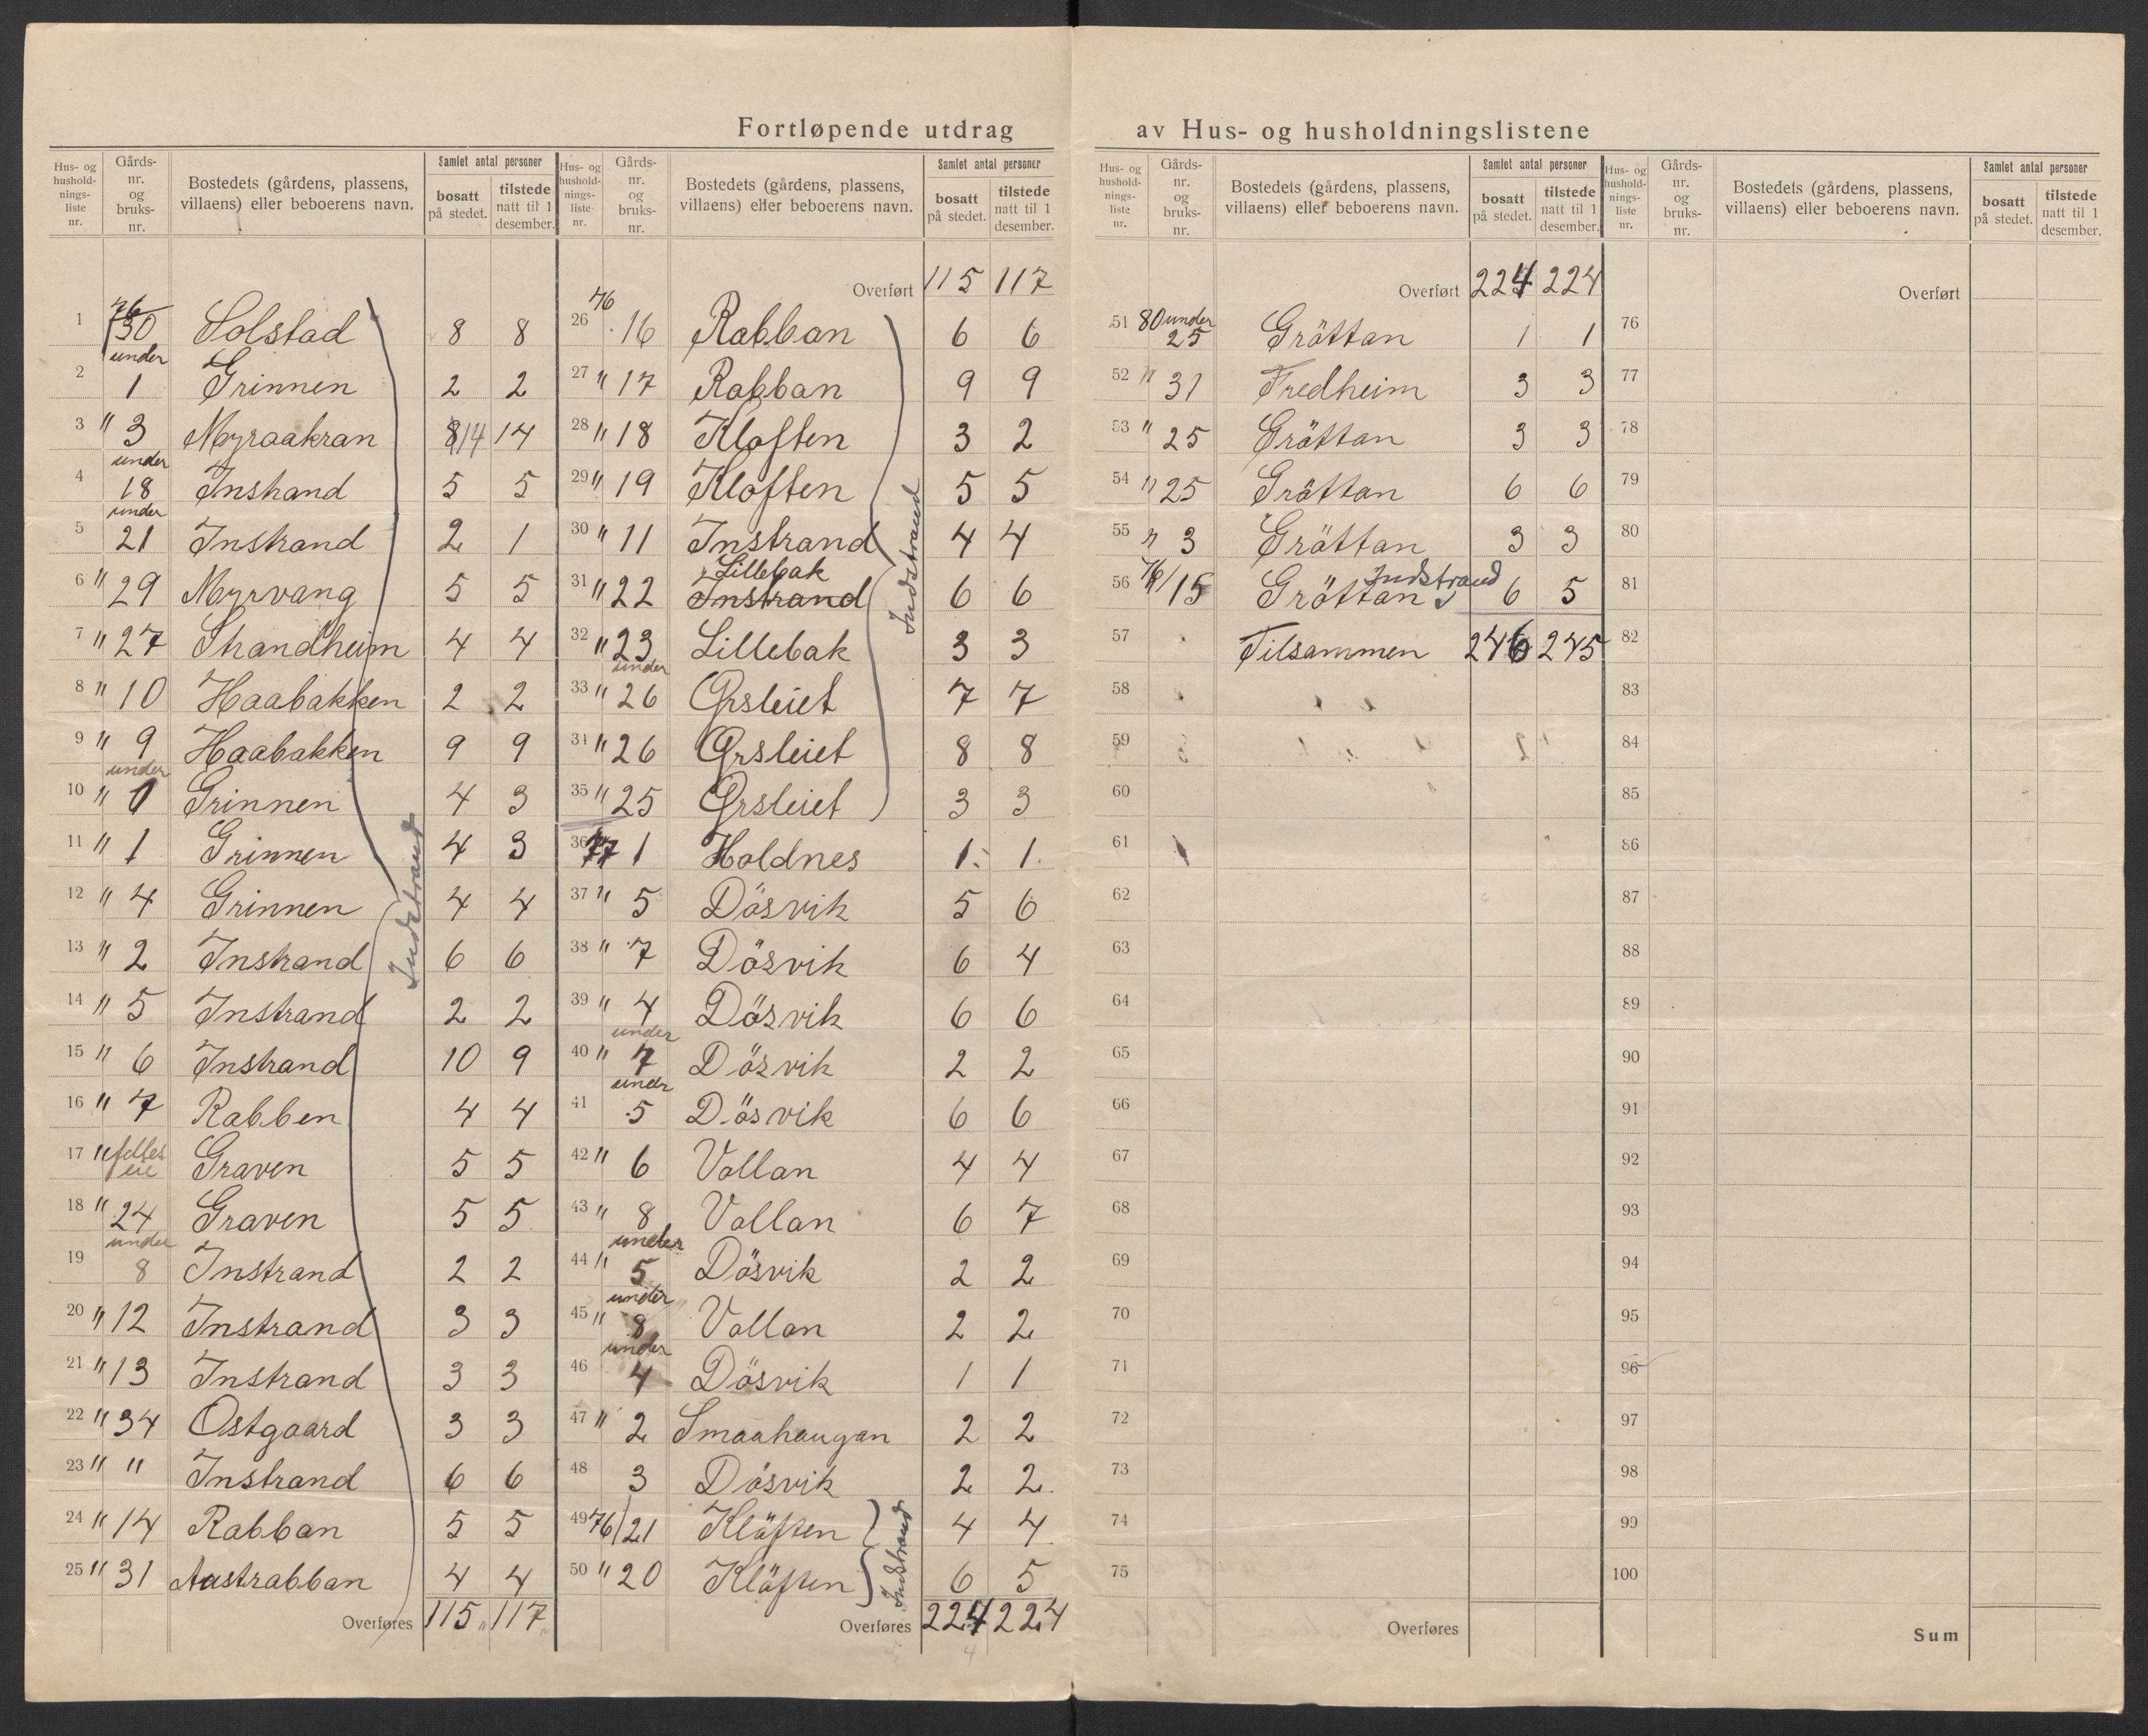 Fortløpende utdrag av Hus- og husholdningslistene
Hus- og hushold- nings- liste nr. | Gårds- nr. og bruks- nr. | Bostedets (gårdens, plassens, villaens) eller beboerens navn. | Samlet antal personer | bosatt på stedet. | tilstede natt til 1 desember.
1 76/30 Solstad 8 8
2 under 1 Grinnen 2 2
3 " 3 Myraakran 8 14 14
4 under 18 Instrand 5 5
5 under 21 Instrand 2 1
6 " 29 Myrvang 5 5
7 " 27 Strandheim 4 4
8 " 10 Haabakken 2 2
9 " 9 Haabakken 9 9
10 " under 1 Grinnen 4 3
11 " 1 Grinnen 4 3
12 " 4 Grinnen 4 4
13 " 2 Instrand 6 6
14 " 5 Instrand 2 2
15 " 6 Instrand 10 9
16 " 7 Rabben 4 4
17 " felles eie Graven 5 5
18 " 24 Graven 5 5
19 under 8 Instrand 2 2
20 " 12 Instrand 3 3
21 " 13 Instrand 3 3
22 " 34 Ostgaard 3 3
23 " " Instrand 6 6
24 " 14 Rabban 5 5
25 " 31 Austrabban 4 4
Indstrand
Overføres 115 117
Hus- og hushold- nings- liste nr. | Gårds- nr. og bruks- nr. | Bostedets (gårdens, plassens, villaens) eller beboerens navn. | Samlet antal personer | bosatt på stedet. | tilstede natt til 1 desember.
Overført 115 117
26 76 16 Rabban 6 6
27 " 17 Rabban 9 9
28 " 18 Kloften 3 2
29 " 19 Kloften 5 5
30 " 11 Instrand 4 4
31 " 22 Lillebak Instrand 6 6
32 " 23 Lillebak 3 3
33 " under 26 Ørsleiet 7 7
34 " 26 Ørsleiet 8 8
35 " 25 Ørsleiet 3 3
Indstrand
36 77 1 Holdnes 1 1
37 " 5 Dösvik 5 6
38 " 7 Dösvik 6 4
39 " 4 Dösvik 6 6
40 " under 7 Dösvik 2 2
41 under 5 Dösvik 6 6
42 " 6 Vollan 4 4
43 " 8 Vollan 6 7
44 " under 5 Dösvik 2 2
45 " under 8 Vollan 2 2
46 under 4 Dösvik 1 1
47 " 2 Smaahaugan 2 2
48 3 Dösvik 2 2
49 76/21 Kläften 4 4
50 " 20 Kläften 6 5
Indstrand
Overføres 224 224
4
Hus- og hushold- nings- liste nr. | Gårds- nr. og bruks- nr. | Bostedets (gårdens, plassens, villaens) eller beboerens navn. | Samlet antal personer | bosatt på stedet. | tilstede natt til 1 desember.
Overført 224 224
51 80 under 25 Gröttan 1 1
52 " 31 Fredheim 3 3
53 " 25 Gröttan 3 3
54 " 25 Gröttan 6 6
55 " 3 Gröttan 3 3
56 76/15 Gröttan Indstrand 6 5
57 Tilsammen 246 245
58
59
60
61
62
63
64
65
66
67
68
69
70
71
72
73
74
75
Overføres
Hus- og hushold- nings- liste nr. | Gårds- nr. og bruks- nr. | Bostedets (gårdens, plassens, villaens) eller beboerens navn. | Samlet antal personer | bosatt på stedet. | tilstede natt til 1 desember.
Overført
76
77
78
79
80
81
82
83
84
85
86
87
88
89
90
91
92
93
94
95
96
97
98
99
100
Sum